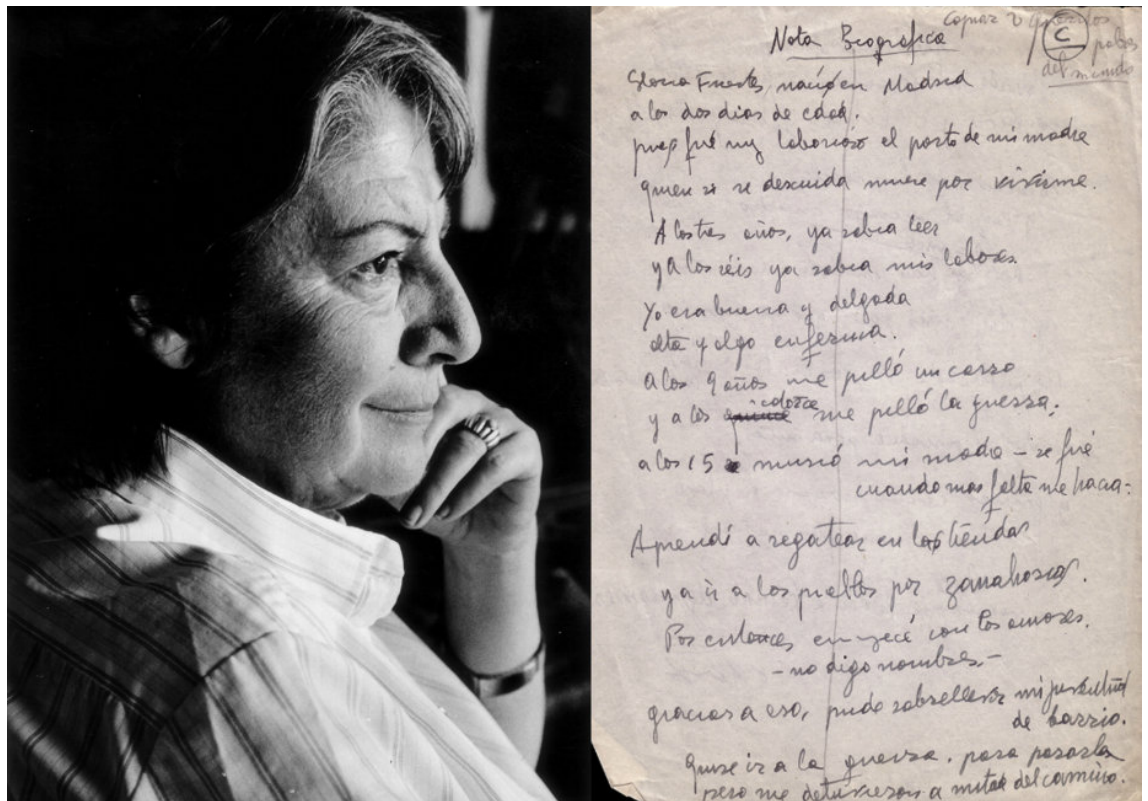 Nota Biografica
copiar
C
pobres
del mundo
Gloria Fuertes nació en Madrid
a los dos dias de edad.
pues fué muy laborioso el parto de mi madre
quien si se descuida muere por vivirme.
A los tres años, ya sabia leer
y a los séis ya sabia mis labores.
Yo era buena y delgada
alta y algo enferma.
a los 9 años me pilló un carro
y a los quince catorce me pilló la guerra;
a los 15 murió mi madre – se fué
cuando mas falta me hacia –
Aprendí a regatear en las tiendas
y a ir a los pueblos por zanahorias.
Por entonces empecé con los amores.
– no digo nombres –
gracias a eso, pude sobrellevar mi juventud
de barrio.
Quise ir a la guerra, para pararla
pero me detuvieron a mitad del camino.